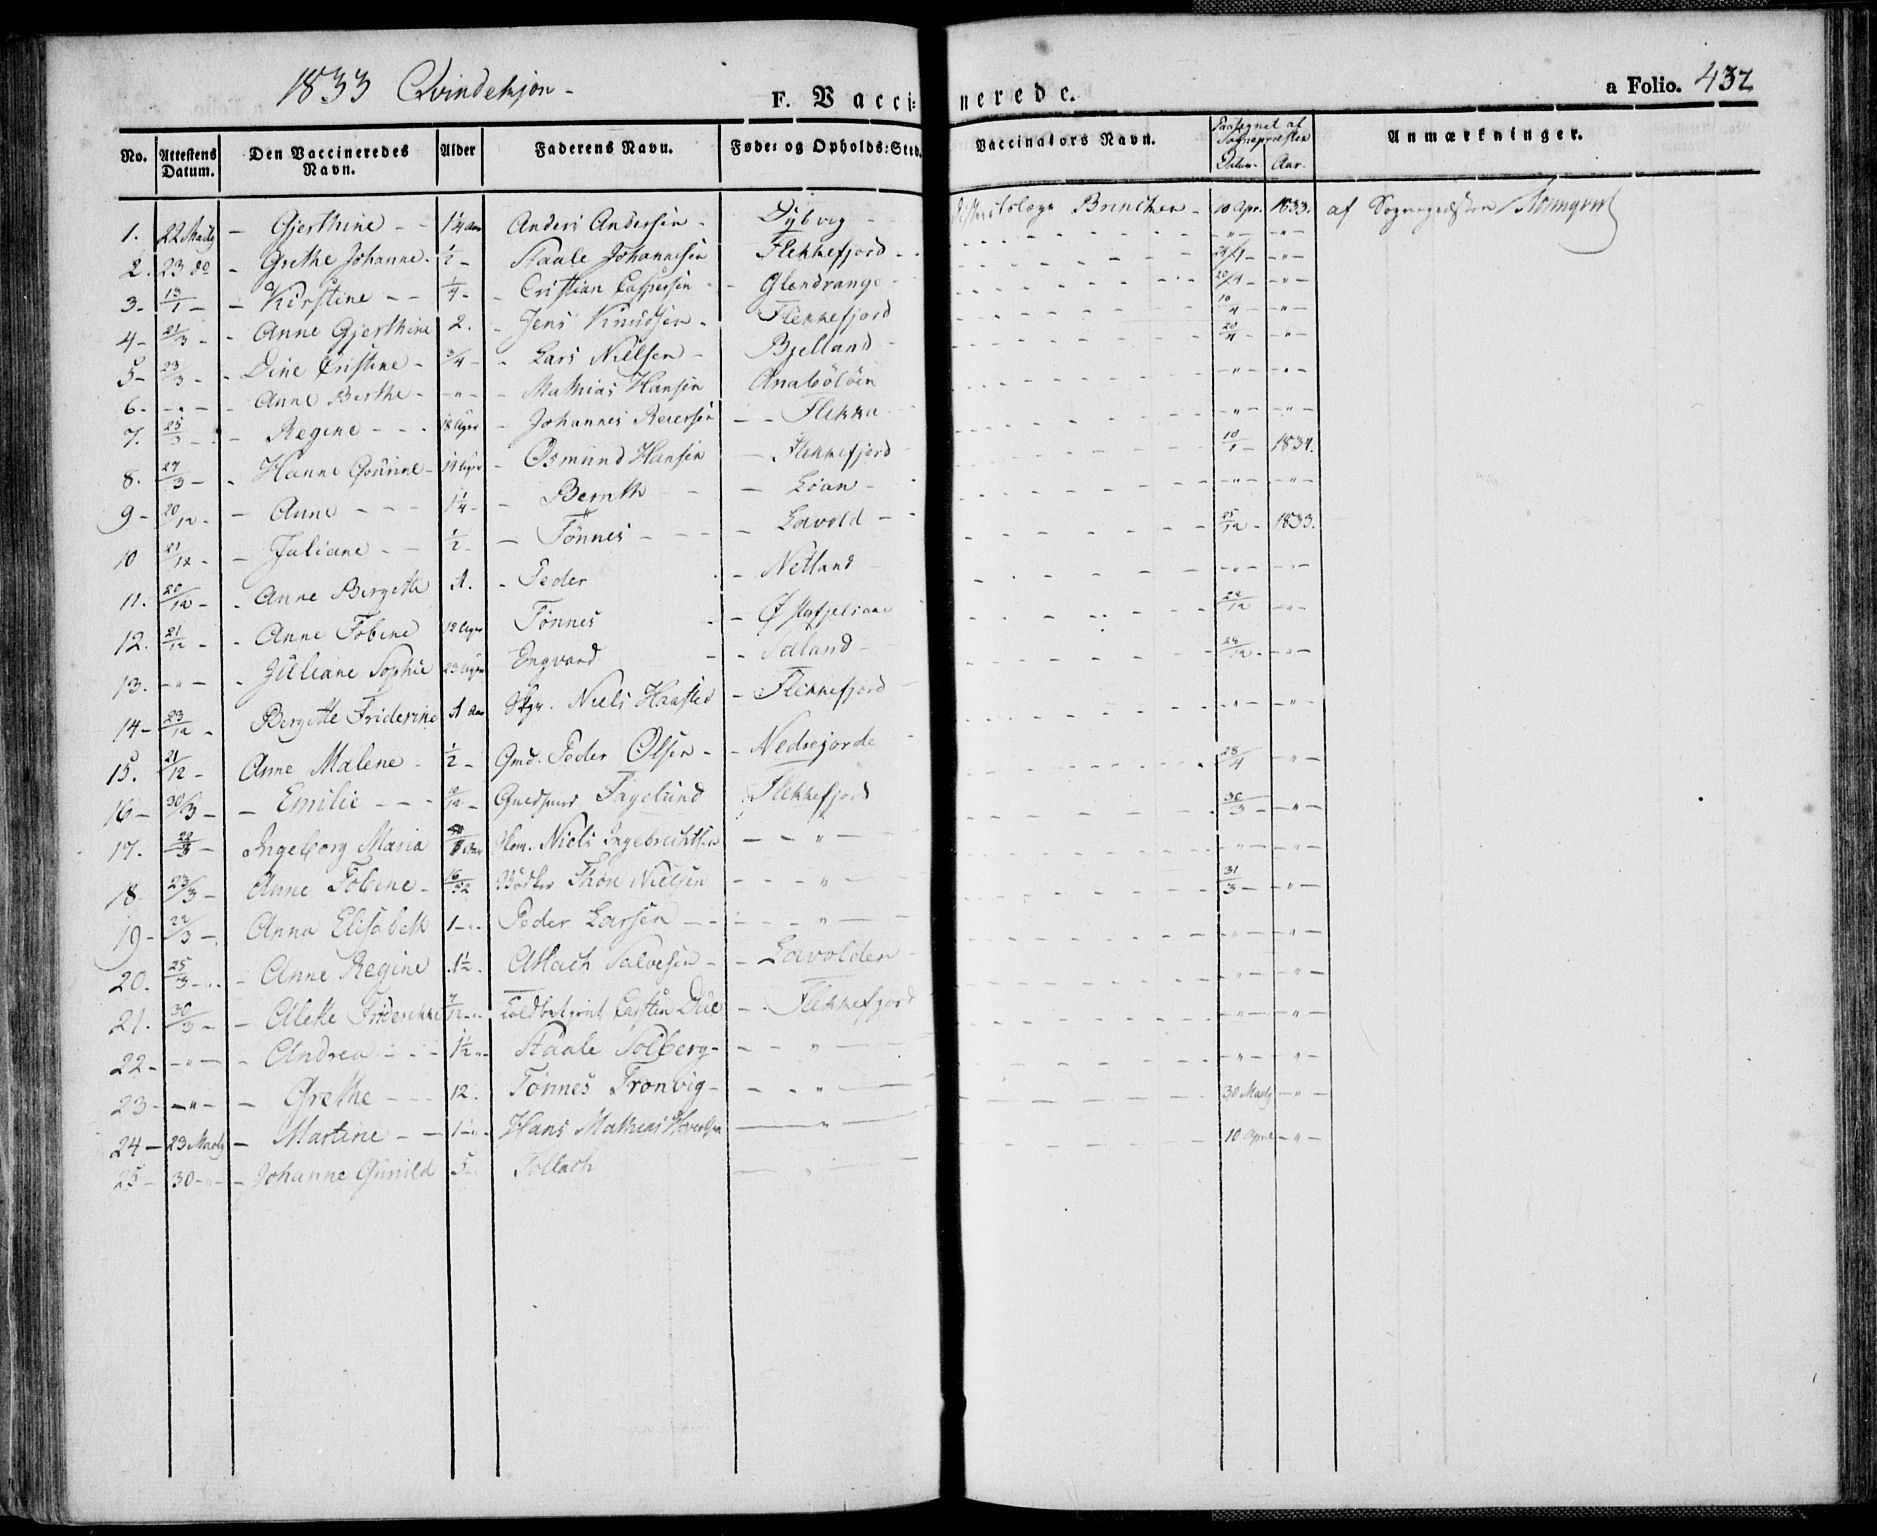 1833 Qvindekjøn -
F. Vaccinerede.
a Folio. 432
No. | Attestens Datum. | Den Vaccineredes Navn. | Alder | Faderens Navn. | Føde- og Opholds-Sted. | Vaccinators Navn. | Paategnet af Sognepræsten Datum. | Aar. | Anmærkninger.
1. | 22 Marty | Gjerthine | 1¼ Aar | Anders Andersen | Dybvig | Districtslæge | 10 Apr. | 1833. | af Sognepræsten
2. | 23 do | Grethe Johanne | ½ | Staale Johannesen | Flekkefjord | - | „ | „
3 - | 13/1 | Kirstine | ¼ | Cristian Caspersen | Glendrange | - | 24/4 | „
4 - | 21/3 | Anne Gjerthine | 2. | Jens Knudsen | Flekkefjord | - | 20/4 | „
5 - | 23/3 | Dine Cristine | ¾ | Lars Nielsen | Bjelland | - | 10/4 | „
6. | „ | Anne Berthe | „ | Mathias Hansen | Anabøløen | - | 20/4 | „
7. | 25/3 | Regine | 18 Uger | Johannes Reiersen | Flekka | - | „ | „
8. | 27/3 | Hanne | 14 Uger | Osmund Hansen | Flekkefjord | - | „ | „
9 - | 20/12 | Anne | 1¼ | Bernth | Loan | - | 10/1 | 1834.
10 | 21/12 | Juliane | ½ | Tønnes | Lavold | - | „ | „
11. | 20/12 | Anne Bergethe | 1. | Peder | Netland | - | 25/12 | 1833.
12. | 21/12 | Anne Tobine | 12 Uger | Tønnes | - | „ | „
13. | „ | Juliane Sophie | 23 Uger | Engvard | Sæland | - | 22/12 | „
14 - | 23/12 | Bergitte Friderine | 1 Aar | Niels Haasted | Flekkefjord | - | 24/12 | „
15. | 21/12 | Anne Malene | ½ | Gmd. Peder Olsen | Nedrejorde | - | „ | „
16 - | 30/3 | Emilie | 10/12 | Fagelund | Flekkefjord | - | 28/4 | „
17. | 22/3 | Ingeborg Maria | Niels Ingebrechtsen | „ | - | 30/3 | „
18. | 23/3 | Anne Tobine | 16/52 | Bødker Thore Nielsen | „ | - | „ | „
19 - | 22/3 | Anna Elisabeth | 1 | Peder Larsen | „ | - | 31/3 | „
20. | 25/3 | Anne Regine | 1½ | Atlach Salvesen | Lavolden | - | „ | „
21. | 30/3 | Alette Friderikke | 7/12 | Toldbetjent Carsten Due | Flekkefjord | - | „ | „
22 - | „ | Andrea | 1½ | Staale Solberg | „ | - | „ | „
23 - | „ | Grethe | 12. | Tønnes Tronvig | „ | - | „ | „
24 - | 23 Marty | Martine | 1 | Hans Mathias | „ | - | 30 Marty | „
25 - | 30 „ | Johanne Gunild | 5 | Tollach | „ | - | 10 April | „